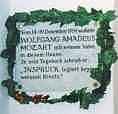 Vom 14.-19. Dezember 1769 wohnte
WOLFGANG AMADEUS
MOZART mit seinem Vater
in diesem Hause.
In sein Tagebuch schrieb er:
"INSPRUCK, logiert beym
weissen Kreutz."